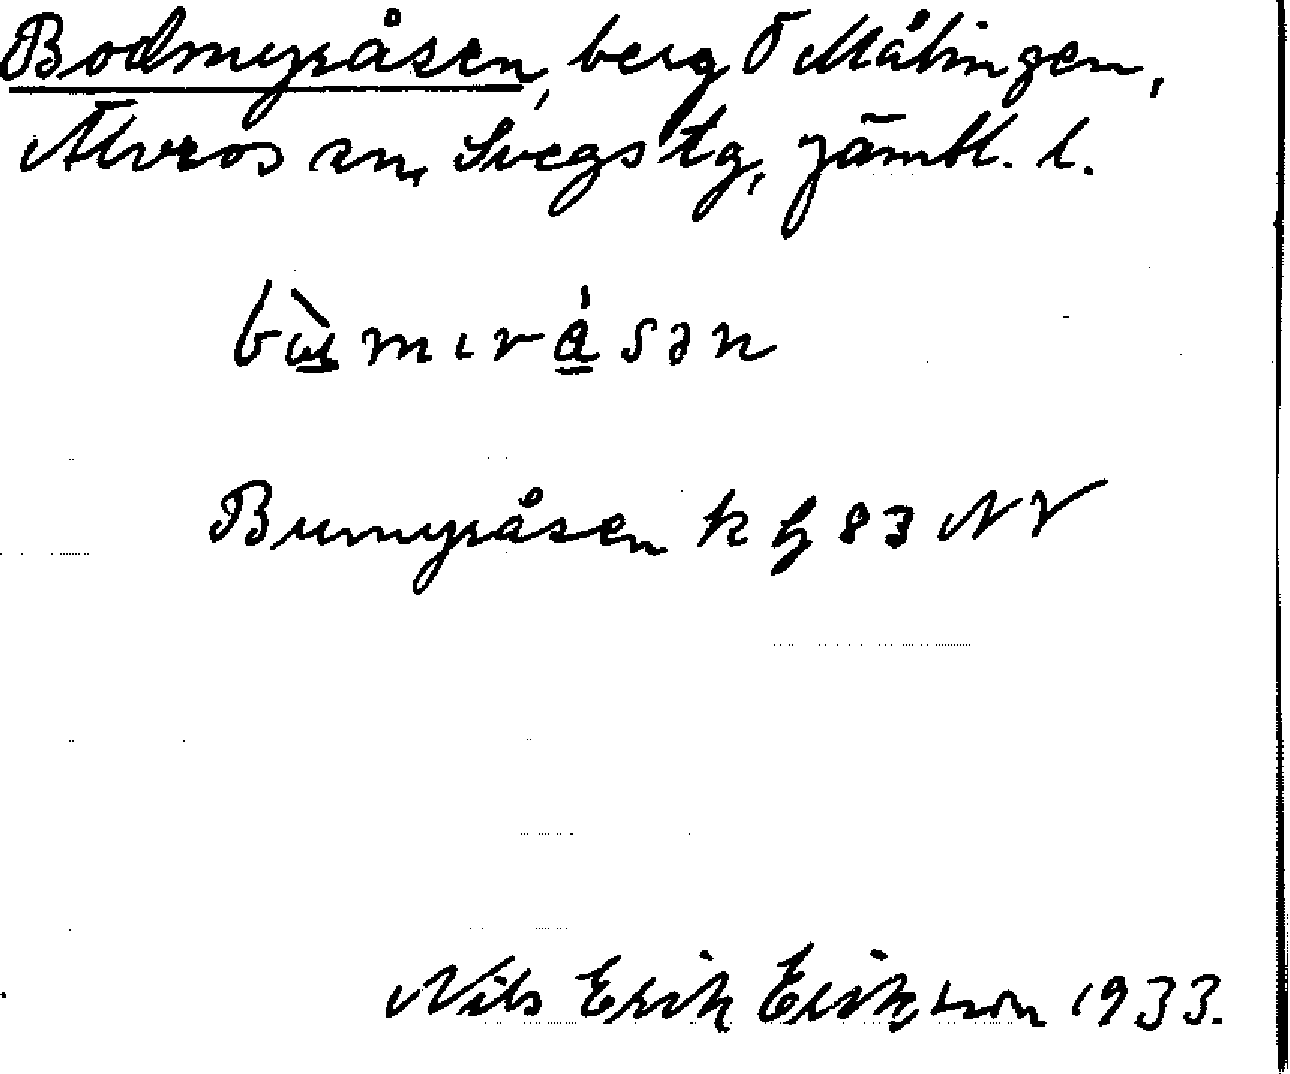 Bodmyråsen, berg Ö Målingen,
Älvros sn, Svegs tg, Jämtl. l.
bù̲mιrá̲sən
Bumyråsen k 83 NV
Nils Erik Eriksson 1933.